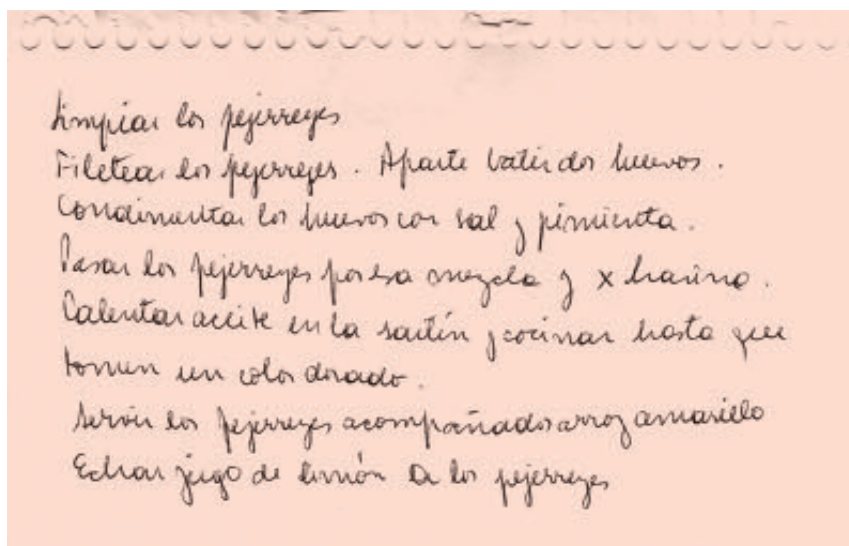 Limpiar los pejerreyes
Filetear los pejerreyes. Aparte batir dos huevos.
Condimentar los huevos con sal y pimienta.
Pasar los pejerreyes por esa mezcla y x harina.
Calentar aceite en la sartén y cocinar hasta que
tomen un color dorado.
Servir los pejerreyes acompañados arroz amarillo
Echar jugo de limón a los pejerreyes